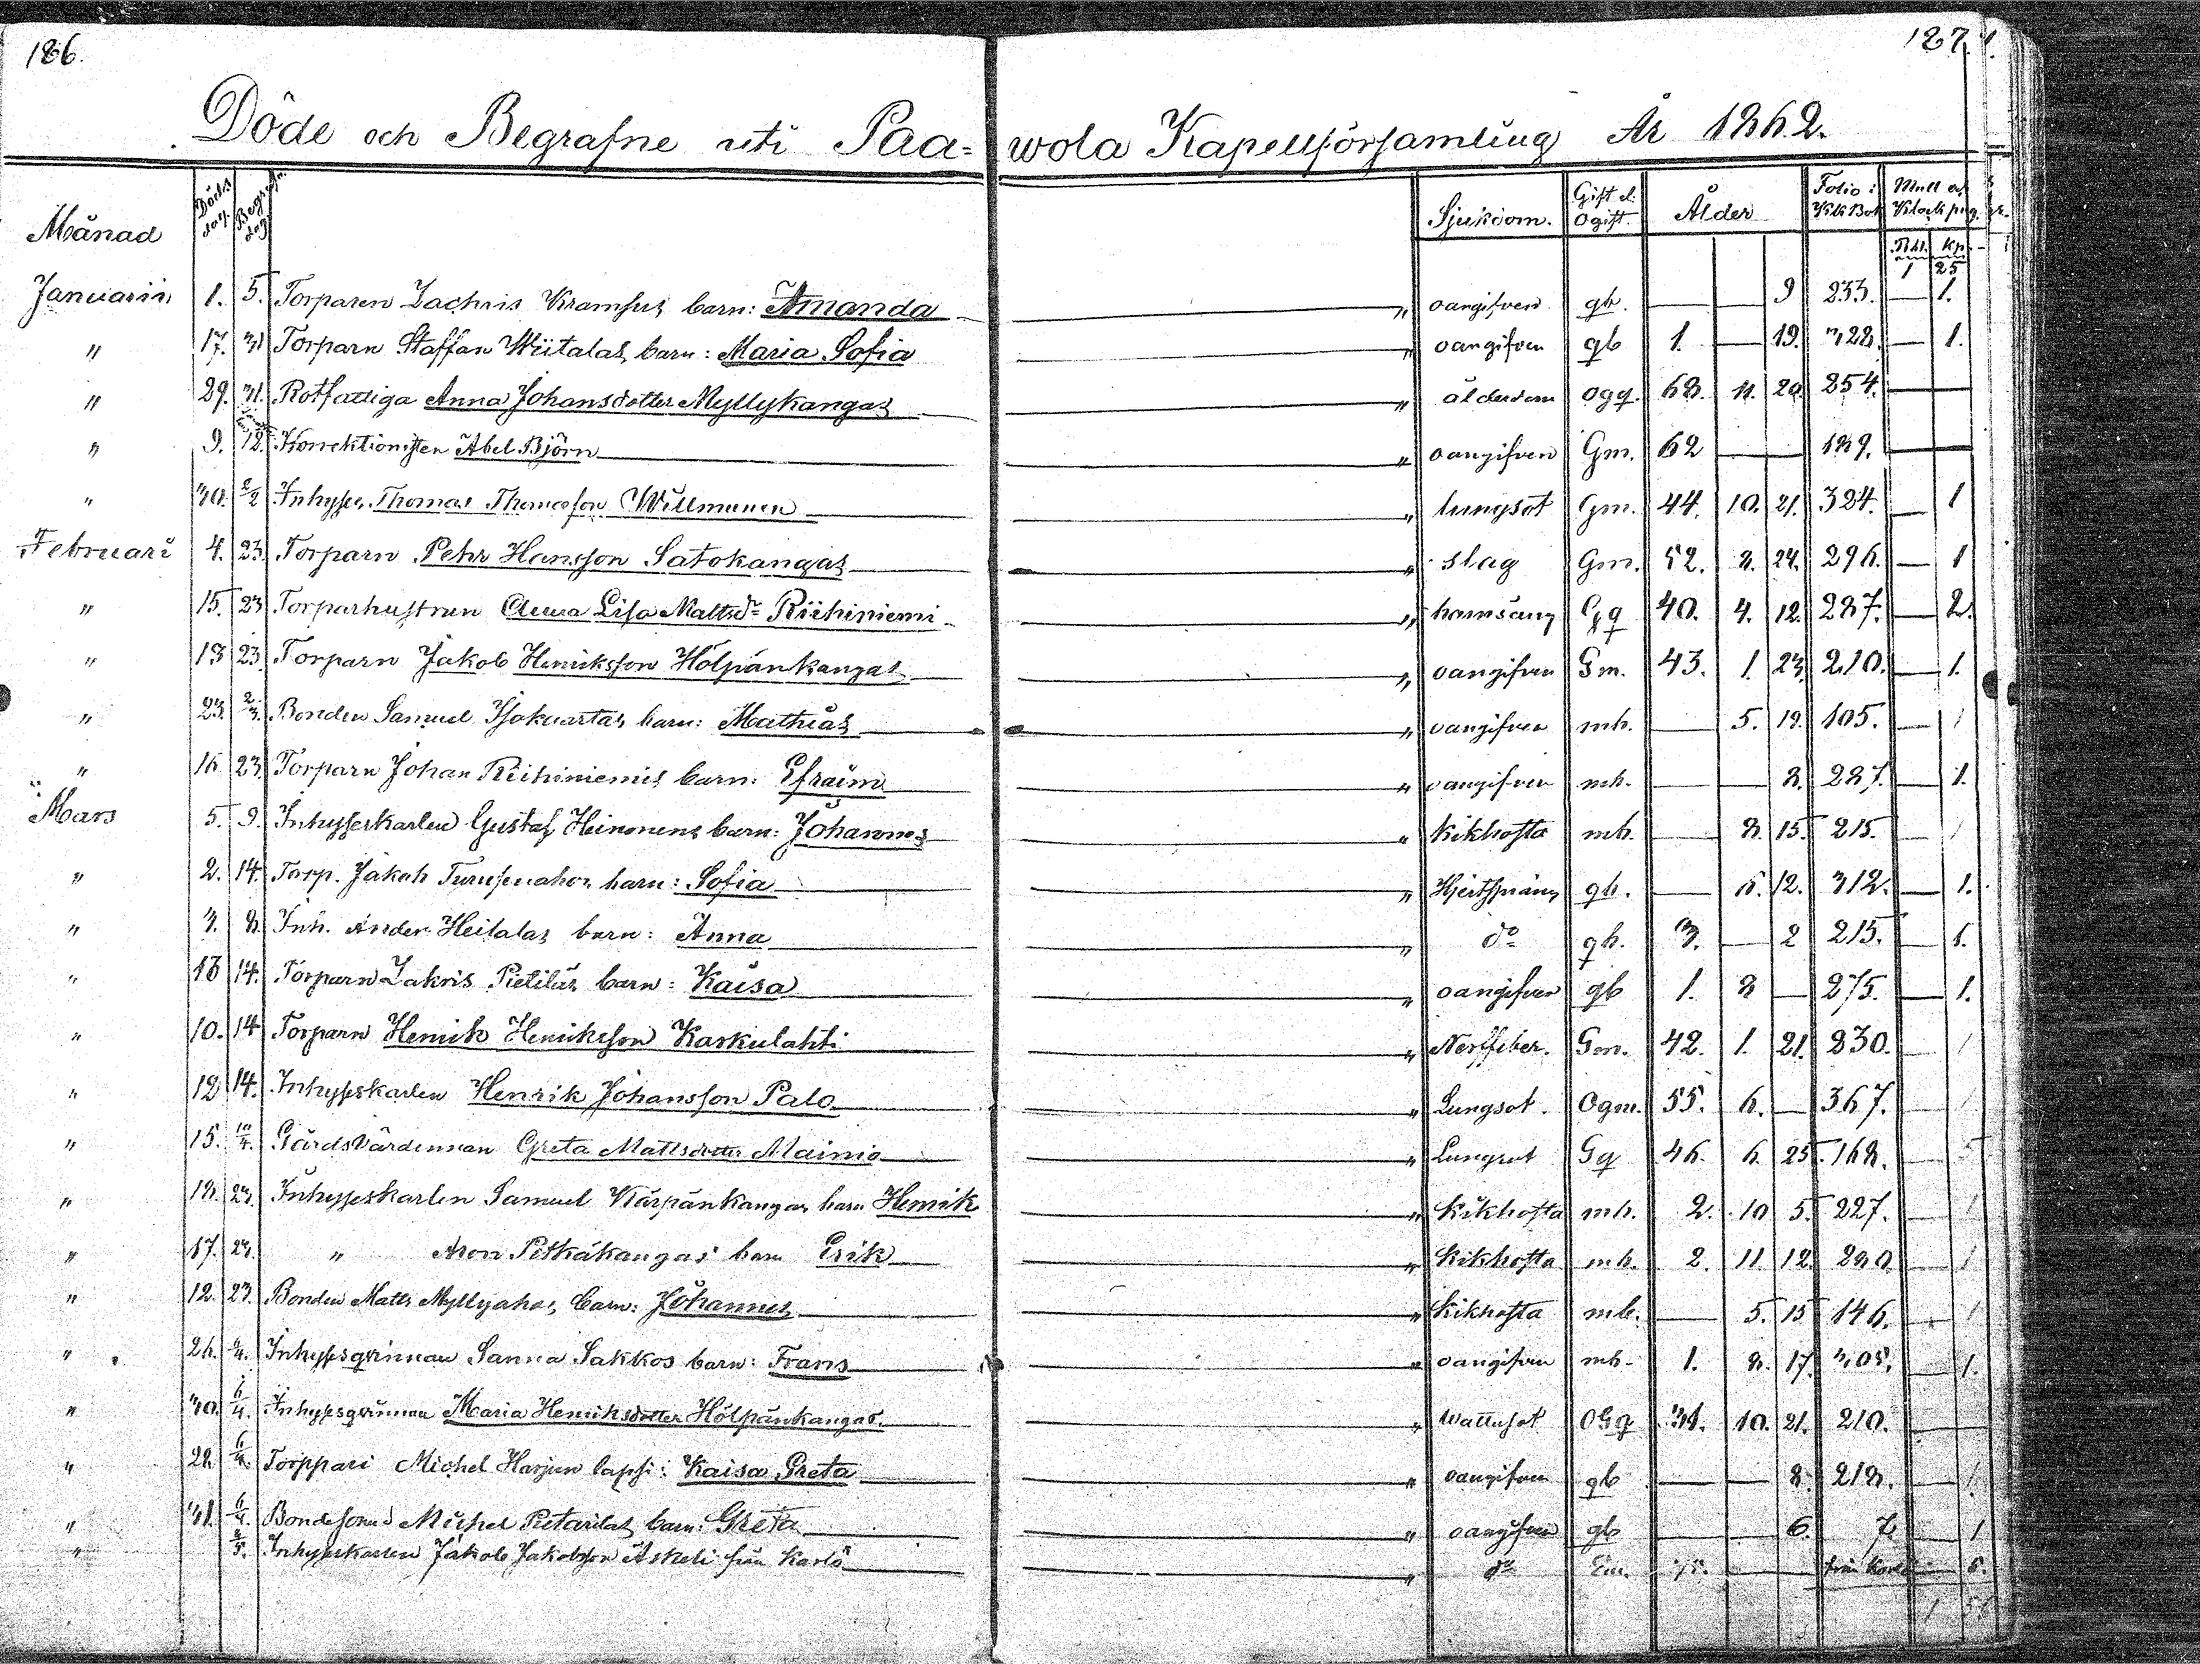 126.
127.
Döde och Begrafne uti Paa=wola Kapellförsamling År 1862.
Månad Döds dag. Begr. dag Sjukdom. Gift el. Ogift. Ålder Folio i Kk Bok Mull och Klock png.
Rbl. Kp.
1 25
Januarii 1. 5. Torparen Zachris Kramsus barn: Amanda " oangifven gb. — — 9 233. — 1.
" 17. 31 Torparn Staffan Wiitalas barn: Maria Sofia " oangifven gb 1. — 19. 328. — 1.
" 29. 31. Rotfattiga Anna Johansdotter Myllykangas " ålderdom ogq. 68. 11. 20. 254. —
" 9. 12. Korrektionisten Abel Björn " oangifven Gm. 62 — 189. —
" 30. 2/2 Inhyses. Thomas Thomasson Willmunen " lungsot Gm. 44. 10. 21. 324. — 1
Februari 4. 23. Torparn Pehr Hansson Satokangas " slag Gm. 52. 8. 24. 296. — 1
" 15. 23 Torparhustrun Anna Lisa Mattsdr Riihiniemi " barnsäng Gq 40. 4. 12. 287. — 2.
" 13 23. Torparn Jakob Henriksson Hölpänkangas " oangifven Gm. 43. 1. 23. 210. — 1.
" 23. 2/3. Bonden Samuel barn: Mathias " oangifven mb. — 5. 19. 105. — 1
" 16 23. Torparn Johan Riihiniemis barn: Efraim " oangifven mb. — — 8. 287. — 1.
Mars 5. 9. Inhyseskarlen Gustaf Heinonens barn: Johannes " Kikhosta mb. — 8. 15. 215. 1
" 2. 14. Torp. Jakob barn: Sofia " Hjertsprång gb. — 6. 12. 312. — 1.
" 3. 8. Inh. Ander Heilalas barn: Anna " do gb. 3. — 2 215. — 1.
" 13 14. Torparn Zakris Pietilas barn: Kaisa " oangifven gb 1. 8 — 275. — 1.
" 10. 14 Torparn Henrik Henriksson Karkulahti " Nerffeber. Gm. 42. 1. 21. 230. 1
" 12 14. Inhyseskarlen Henrik Johansson Palo " Lungsot. Ogm. 55. 6. — 367. 1
" 15. 10/4. Gårdsvärdinnan Greta Mattsdotter Mainio " Lungsot Gq 46. 6. 25. 168. 5
" 18. 23. Inhyseskarlen Samuel Kärpänkangas barn Henrik " Kikhosta mb. 2. 10 5. 227. 1
" 17. 23. " Aron Pitkäkangas barn Erik " Kikhosta mb. 2. 11 12. 1
" 12. 23. Bonden Matts Myllyahos barn: Johannes " Kikhosta mb. — 5. 15 146. 1
" 26. Inhysesqvinnan Sanna Sakkos barn: Frans " oangifven mb. 1. 8. 17. 305. 1.
" 30. 6/4. Inhysesqvinnan Maria Henriksdotter Hölpänkangas. " Wattusot OGq 31. 10. 21. 210.
" 28. 6/4. Torppari Michel Harjun lapsi: Kaisa Greta " oangifven gb — — 8. 218. 1
" 31. 6/4. Bondesonens Michel Pietarilas barn: Greta " oangifven gb — — 6. 7. 1
" Inhyseskarlen Jakob Jakobsson Askeli från Karlö " do Gm. 75. — från Karlö 6.